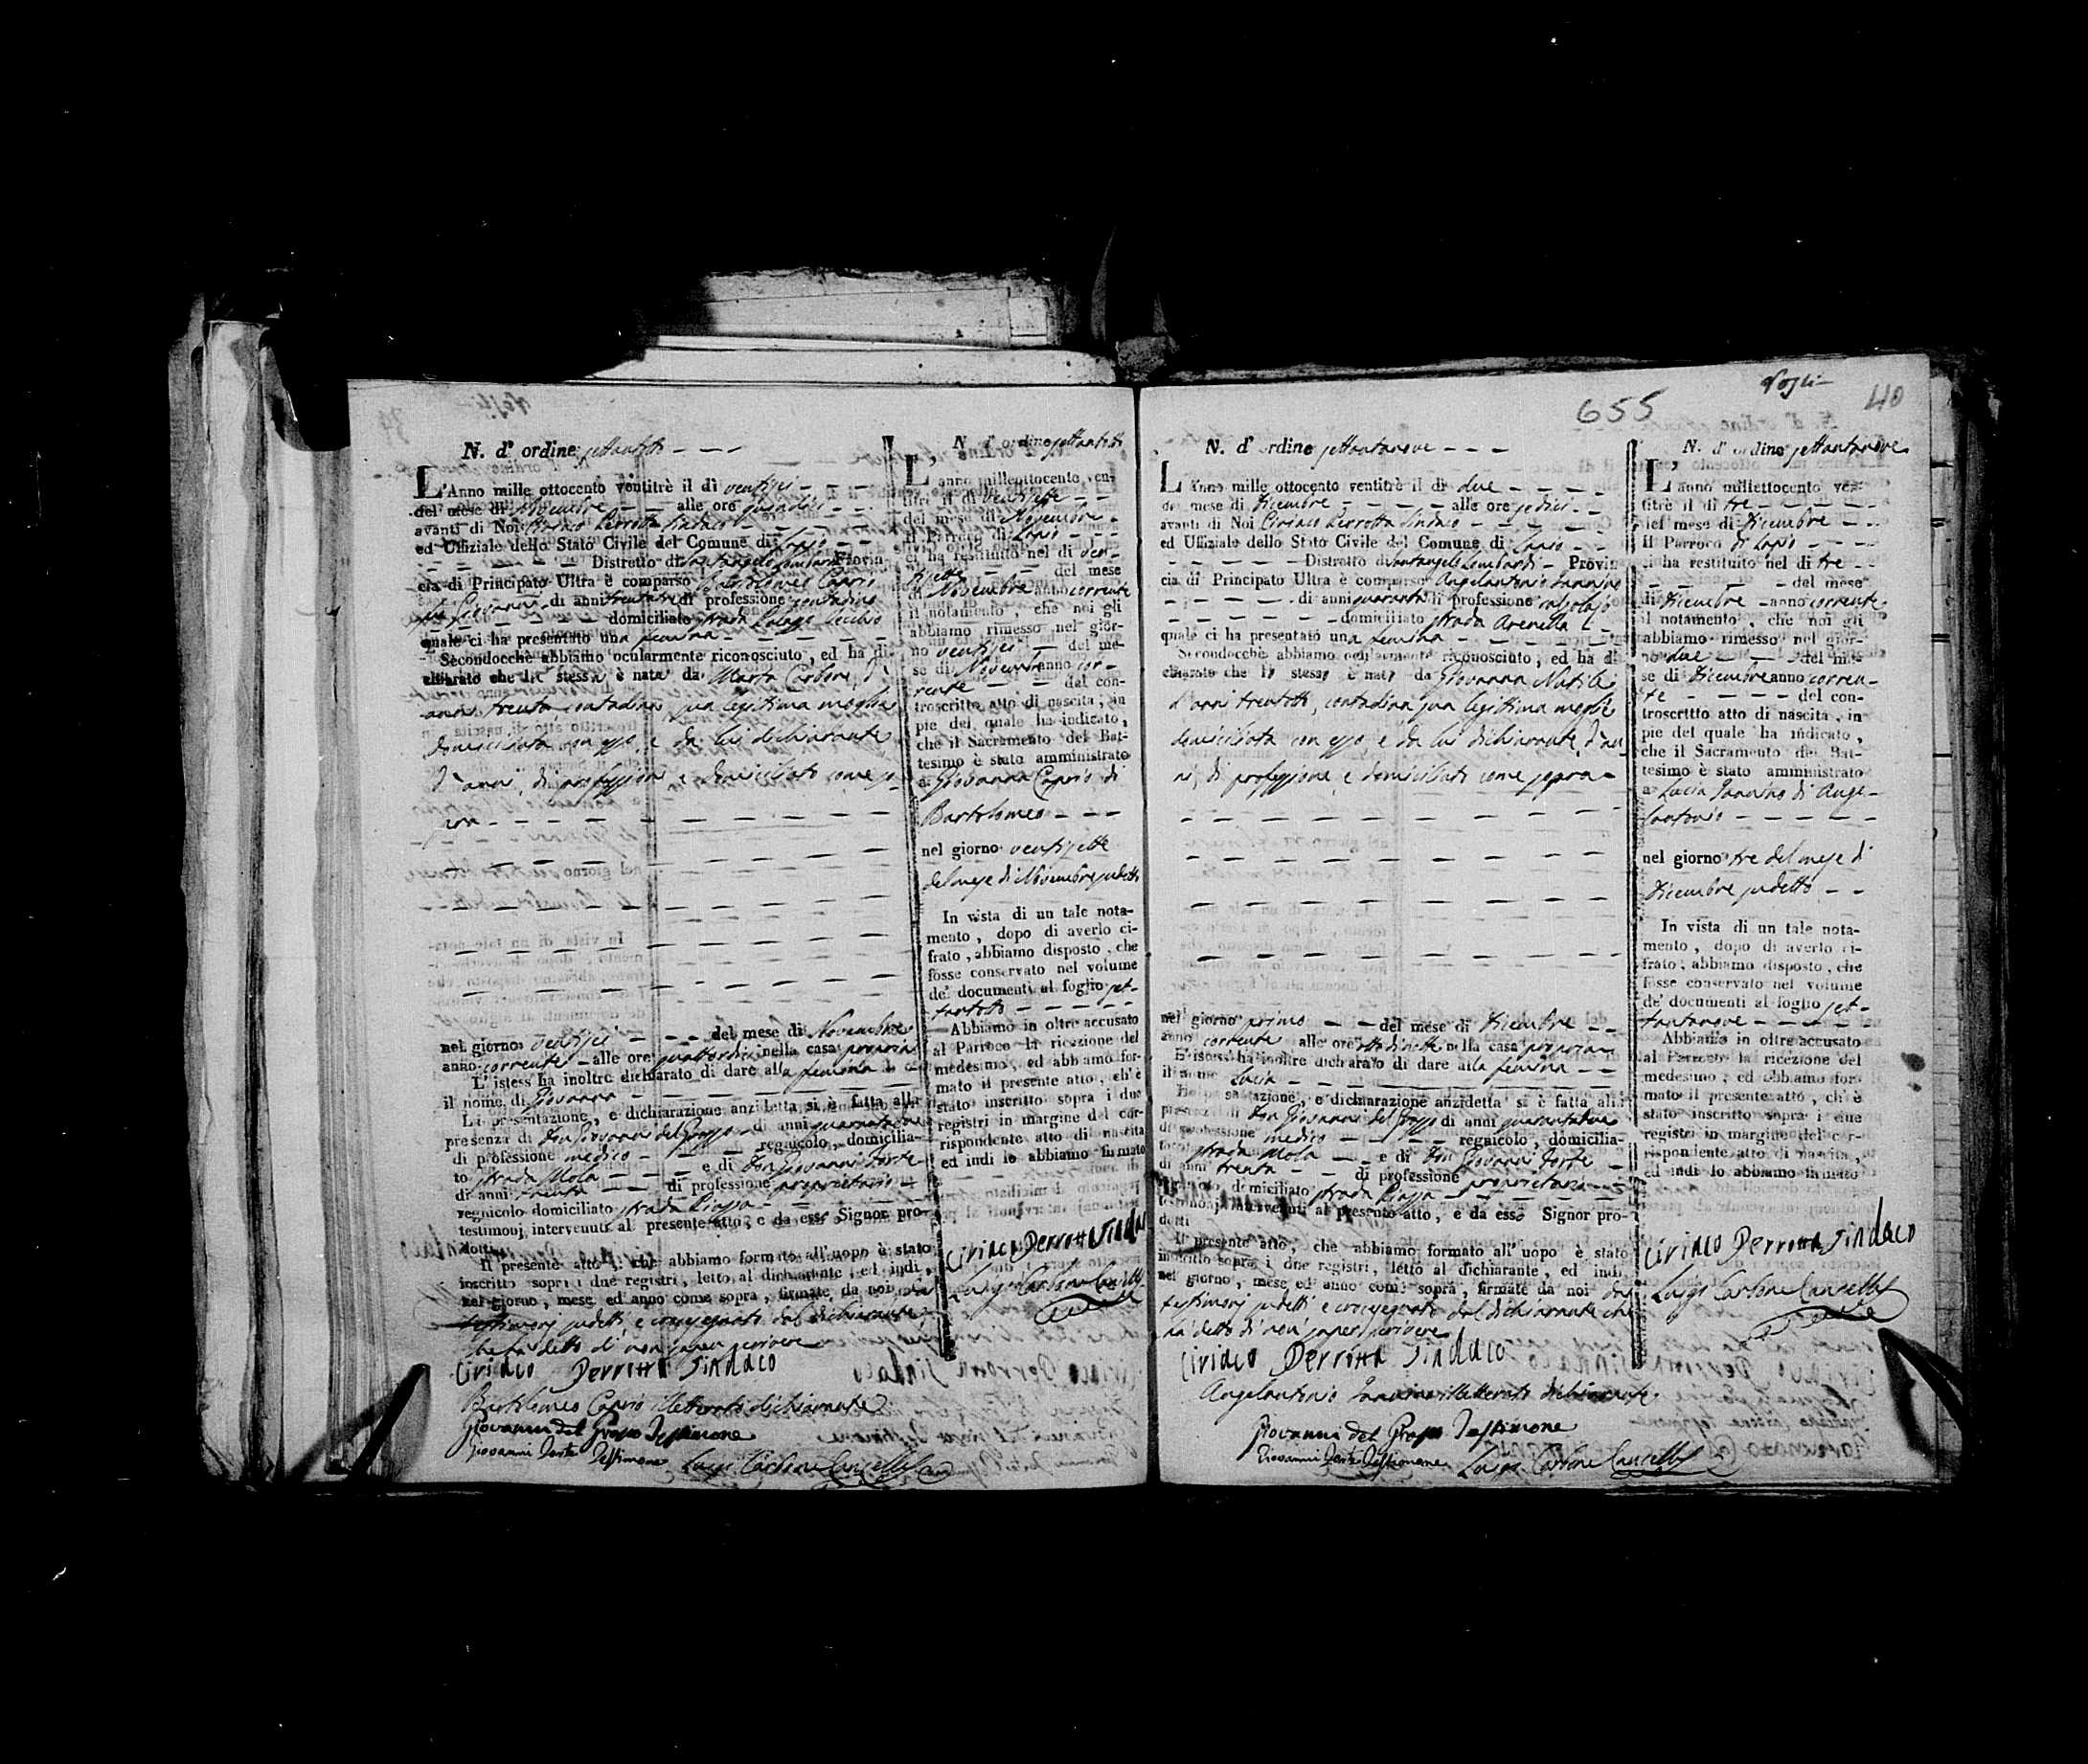 N. d' ordine settantotto
L'Anno mille ottocento ventitrè il dì ventisei
del mese di Novembre alle ore quindici
avanti di Noi Ciriaco Perrotta Sindaco
ed Uffiziale dello Stato Civile del Comune di Lapio
Distretto di Santangelo Lombardi Provin
cia di Principato Ultra è comparso Bartolomeo Caprio
fu Giovanni di anni trentatre di professione contadino
domiciliato strada
quale ci ha presentato una femina
Secondocchè abbiamo ocularmente riconosciuto, ed ha di
chiarato che la stessa è nata da Marta Carbone d'
anni trenta contadina sua legittima moglie
domiciliata con esso, e da lui dichiarante
d'anni, di professione e domiciliato come so
pra
nel giorno ventisei del mese di Novembre
anno corrente alle ore quattordici nella casa propria
L'istess ha inoltre dichiarato di dare alla femina
il nome di Giovanna
La presentazione, e dichiarazione anzidetta si è fatta alla
presenza di Don Giovanni del Grosso di anni quarantadue
di professione medico regnicolo, domicilia-
to strada Mola e di Don Giovanni Forte
di anni trenta di professione proprietario
regnicolo domiciliato strada Piazza
testimonj intervenuti al presente atto, e da esso Signor pro-
dotti.
Il presente atto, che abbiamo formato all' uopo è stato
inscritto sopra i due registri, letto al dichiarante, ed indi,
nel giorno, mese ed anno come sopra, firmato da noi dai
testimonj sudetti e crocesegnato dal dichiarante
che ha detto di non saper scrivere
Ciriaco Perrotta Sindaco
Bartolomeo Caprio illetterato dichiarante
Giovanni del Grosso Testimone
Giovanni Forte Testimone Luigi Carbone Cancell
N. d' ordine settantotto
L' anno milleottocento ven-
titrè il dì ventisette
del mese di Novembre
il Parroco di Lapio
ci ha restituito nel dì ven-
tisette del mese
di Novembre anno corrente
il notamento, che noi gli
abbiamo rimesso nel gior-
no ventisei del me-
se di Novembre anno cor-
rente dal con-
troscritto atto di nascita, in
pie del quale ha indicato,
che il Sacramento del Bat-
tesimo è stato amministrato
a Giovanna Caprio di
Bartolomeo
nel giorno ventisette
del mese di Novembre sudetto
In vista di un tale nota-
mento, dopo di averlo ci-
frato, abbiamo disposto, che
fosse conservato nel volume
de' documenti al foglio set-
tantotto
Abbiamo in oltre accusato
al Parroco la ricezione del
medesimo, ed abbiamo for-
mato il presente atto, ch'è
stato inscritto sopra i due
registri in margine del cor-
rispondente atto di nascita
ed indi lo abbiamo firmato
Ciriaco Perrotta Sindaco
Luigi Carbone Cancell
655
40
N. d' ordine settantanove
L' Anno mille ottocento ventitrè il di due
del mese di Dicembre alle ore sedici
avanti di Noi Ciriaco Perrotta Sindaco
ed Uffiziale dello Stato Civile del Comune di Lapio
Distretto di Santangelo Lombardi Provin
cia di Principato Ultra è comparso Angelantonio Iannino
di anni quaranta di professione
domiciliato strada Arenella
quale ci ha presentato una femina
Secondocchè abbiamo ocularmente riconosciuto, ed ha di
chiarato che la stessa è nata da Giovanna
d'anni trentotto, contadina sua legittima moglie
domiciliata con esso, e da lui dichiarante, d'an
ni, di professione, e domiciliato come sopra
nel giorno primo del mese di Dicembre
anno corrente alle ore nella casa propria
L'istess ha inoltre dichiarato di dare alla femina
il nome Lucia
La presentazione, e dichiarazione anzidetta si è fatta alla
presenza di Don Giovanni del Grosso di anni quarantadue
di professione medico regnicolo, domicilia-
to strada Mola e di Don Giovanni Forte
di anni trenta di professione proprietario
regnicolo domiciliato strada Piazza
testimonj intervenuti al presente atto, e da esso Signor pro-
dotti
Il presente atto, che abbiamo formato all' uopo è stato
inscritto sopra i due registri, letto al dichiarante, ed indi,
nel giorno, mese ed anno come sopra, firmato da noi dai
testimonj sudetti e crocesegnato dal dichiarante che
ha detto di non saper scrivere
Ciriaco Perrotta Sindaco
Angelantonio Iannino illetterato dichiarante
Giovanni del Grosso Testimone
Giovanni Forte Testimone Luigi Carbone Cancell
N. d' ordine settantanove
L' anno millettocento ven-
titrè il di tre
del mese di Dicembre
Il Parroco di Lapio
ci ha restituito nel di tre
del mese
di Dicembre anno corrente
il notamento, che noi gli
abbiamo rimesso nel gior-
no due del me-
se di Dicembre anno corren-
te del con-
troscritto atto di nascita, in
pie del quale ha indicato,
che il Sacramento del Bat-
tesimo è stato amministrato
a Lucia Iannino di Ange-
lantonio
nel giorno tre del mese di
Dicembre sudetto
In vista di un tale nota-
mento, dopo di averlo ci-
frato, abbiamo disposto, che
fosse conservato nel volume
de' documenti al foglio set-
tantanove
Abbiamo in oltre accusato
al Parroco la ricezione del
medesimo, ed abbiamo for-
mato il presente atto, ch' è
stato inscritto sopra i due
registri in margine del cor-
rispondente atto di nascita,
ed indi lo abbiamo firmato
Ciriaco Perrotta Sindaco
Luigi Carbone Cancell